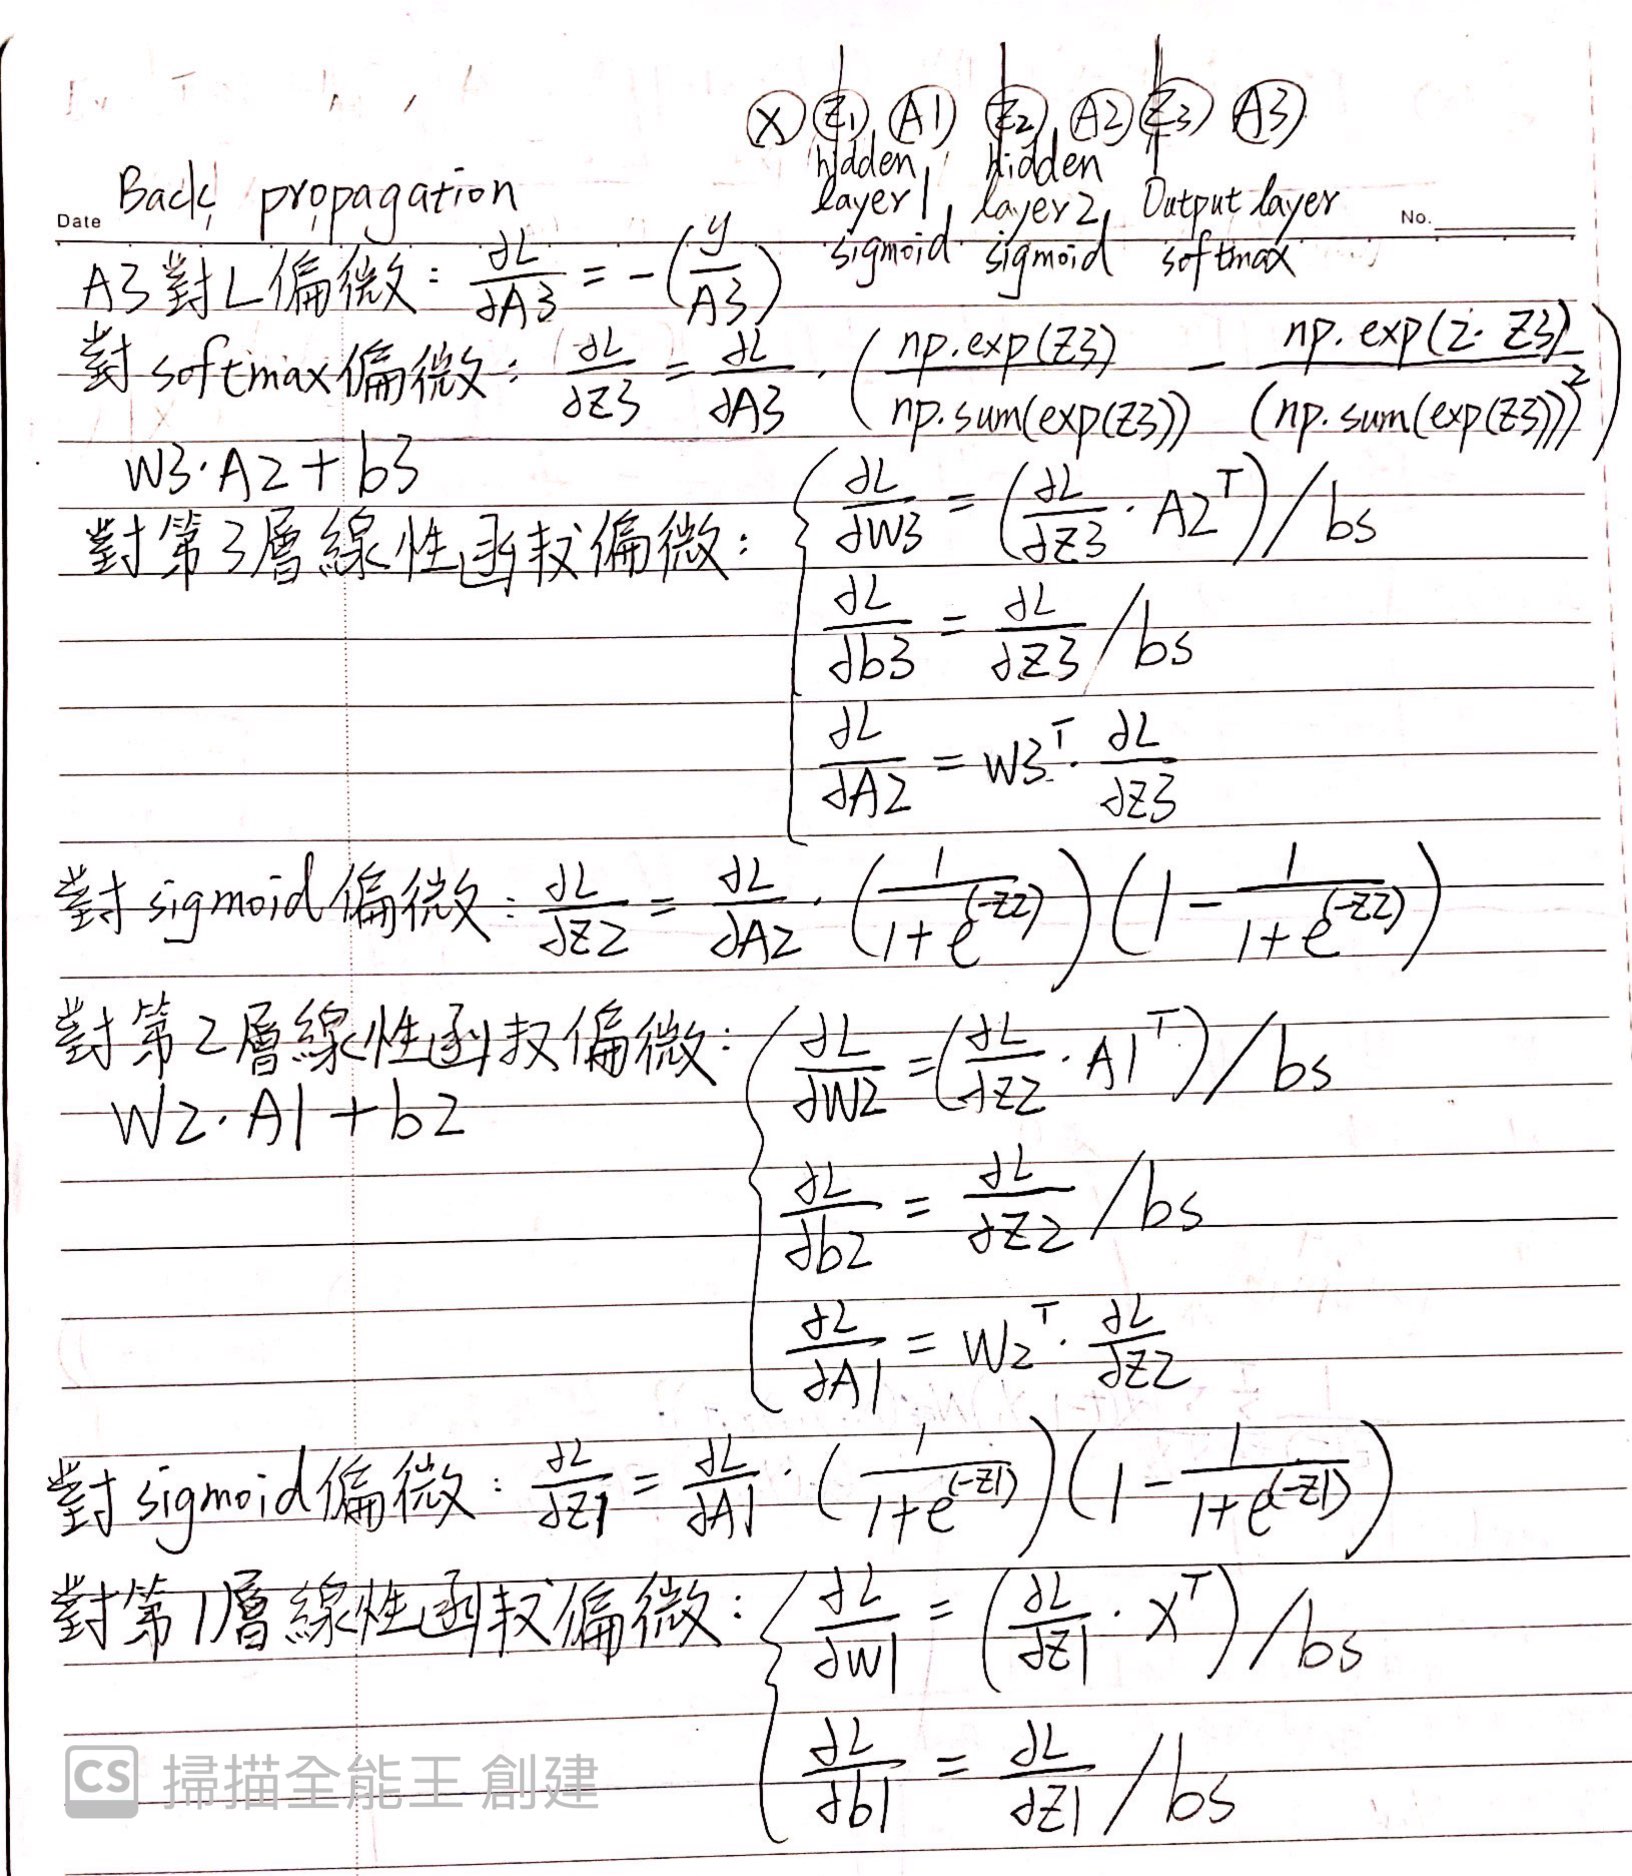 X Z1 A1 Z2 A2 Z3 A3
hidden layer1, sigmoid
hidden layer2, sigmoid
Output layer softmax
Date Back propagation No.
A3對L偏微: ∂L/∂A3 = -(y/A3)
對softmax偏微: ∂L/∂Z3 = ∂L/∂A3 · (np.exp(Z3)/np.sum(exp(Z3)) - np.exp(2·Z3)/(np.sum(exp(Z3)))²)
W3·A2+b3
對第3層線性函数偏微: ∂L/∂W3 = (∂L/∂Z3 · A2ᵀ)/bs
∂L/∂b3 = ∂L/∂Z3 /bs
∂L/∂A2 = W3ᵀ · ∂L/∂Z3
對sigmoid偏微: ∂L/∂Z2 = ∂L/∂A2 · (1/(1+e^(-Z2)))(1 - 1/(1+e^(-Z2)))
對第2層線性函数偏微: ∂L/∂W2 = (∂L/∂Z2 · A1ᵀ)/bs
W2·A1+b2
∂L/∂b2 = ∂L/∂Z2 /bs
∂L/∂A1 = W2ᵀ · ∂L/∂Z2
對sigmoid偏微: ∂L/∂Z1 = ∂L/∂A1 · (1/(1+e^(-Z1)))(1 - 1/(1+e^(-Z1)))
對第1層線性函数偏微: ∂L/∂W1 = (∂L/∂Z1 · Xᵀ)/bs
∂L/∂b1 = ∂L/∂Z1 /bs
CS 掃描全能王 創建